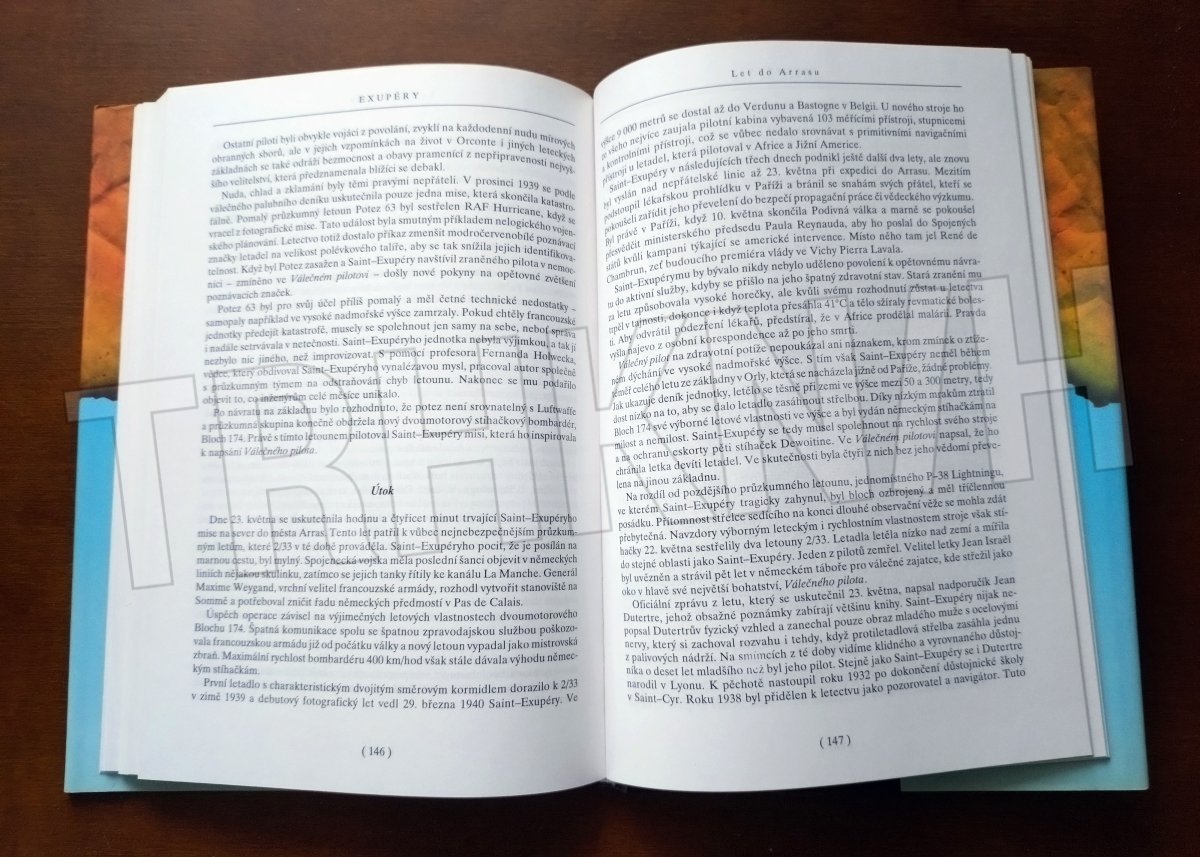 EXUPÉRY
Ostatní piloti byli obvykle vojáci z povolání, zvyklí na každodenní nudu mírových
obranných sborů, ale v jejich vzpomínkách na život v Orconte i jiných leteckých
základnách se také odráží bezmocnost a obavy pramenící z nepřipravenosti nejvyš-
šího velitelství, která předznamenala blížící se debakl.
Nuda, chlad a zklamání byly těmi pravými nepřáteli. V prosinci 1939 se podle
válečného palubního deníku uskutečnila pouze jedna mise, která skončila katastro-
fálně. Pomalý průzkumný letoun Potez 63 byl sestřelen RAF Hurricane, když se
vracel z fotografické mise. Tato událost byla smutným příkladem nelogického vojen-
ského plánování. Letectvo totiž dostalo příkaz zmenšit modročervenobílé poznávací
značky letadel na velikost polévkového talíře, aby se tak snížila jejich identifikova-
telnost. Když byl Potez zasažen a Saint–Exupéry navštívil zraněného pilota v nemoc-
nici – zmíněno ve Válečném pilotovi – došly nové pokyny na opětovné zvětšení
poznávacích značek.
Potez 63 byl pro svůj účel příliš pomalý a měl četné technické nedostatky –
samopaly například ve vysoké nadmořské výšce zamrzaly. Pokud chtěly francouzské
jednotky předejít katastrofě, musely se spolehnout jen samy na sebe, neboť správa
i nadále setrvávala v netečnosti. Saint–Exupéryho jednotka nebyla výjimkou, a tak jí
nezbylo nic jiného, než improvizovat. S pomocí profesora Fernanda Holwecka,
vědce, který obdivoval Saint–Exupéryho vynalézavou mysl, pracoval autor společně
s průzkumným týmem na odstraňování chyb letounu. Nakonec se mu podařilo
objevit to, co inženýrům celé měsíce unikalo.
Po návratu na základnu bylo rozhodnuto, že potez není srovnatelný s Luftwaffe
a průzkumná skupina konečně obdržela nový dvoumotorový stíhačkový bombardér,
Bloch 174. Právě s tímto letounem pilotoval Saint–Exupéry misi, která ho inspirovala
k napsání Válečného pilota.
Útok
Dne 23. května se uskutečnila hodinu a čtyřicet minut trvající Saint–Exupéryho
mise na sever do města Arras. Tento let patřil k vůbec nejnebezpečnějším průzkum-
ným letům, které 2/33 v té době prováděla. Saint–Exupéryho pocit, že je posílán na
marnou cestu, byl mylný. Spojenecká vojska měla poslední šanci objevit v německých
liniích nějakou skulinku, zatímco se jejich tanky řítily ke kanálu La Manche. Generál
Maxime Weygand, vrchní velitel francouzské armády, rozhodl vytvořit stanoviště na
Sommě a potřeboval zničit řadu německých předmostí v Pas de Calais.
Úspěch operace závisel na výjimečných letových vlastnostech dvoumotorového
Blochu 174. Špatná komunikace spolu se špatnou zpravodajskou službou poškozo-
vala francouzskou armádu již od počátku války a nový letoun vypadal jako mistrovská
zbraň. Maximální rychlost bombardérů 400 km/hod však stále dávala výhodu němec-
kým stíhačkám.
První letadlo s charakteristickým dvojitým směrovým kormidlem dorazilo k 2/33
v zimě 1939 a debutový fotografický let vedl 29. března 1940 Saint–Exupéry. Ve
( 146 )
Let do Arrasu
výšce 9 000 metrů se dostal až do Verdunu a Bastogne v Belgii. U nového stroje ho
ze všeho nejvíce zaujala pilotní kabina vybavená 103 měřícími přístroji, stupnicemi
a kontrolními přístroji, což se vůbec nedalo srovnávat s primitivními navigačními
přístroji u letadel, která pilotoval v Africe a Jižní Americe.
Saint–Exupéry v následujících třech dnech podnikl ještě další dva lety, ale znovu
byl vyslán nad nepřátelské linie až 23. května při expedici do Arrasu. Mezitím
podstoupil lékařskou prohlídku v Paříži a bránil se snahám svých přátel, kteří se
pokoušeli zařídit jeho převelení do bezpečí propagační práce či vědeckého výzkumu.
Byl právě v Paříži, když 10. května skončila Podivná válka a marně se pokoušel
přesvědčit ministerského předsedu Paula Reynauda, aby ho poslal do Spojených
států kvůli kampani týkající se americké intervence. Místo něho tam jel René de
Chambrun, zeť budoucího premiéra vlády ve Vichy Pierra Lavala.
Saint–Exupérymu by bývalo nikdy nebylo uděleno povolení k opětovnému návra-
tu do aktivní služby, kdyby se přišlo na jeho špatný zdravotní stav. Stará zranění mu
za letu způsobovala vysoké horečky, ale kvůli svému rozhodnutí zůstat u letectva
trpěl v tajnosti, dokonce i když teplota přesáhla 41°C a tělo sžíraly revmatické boles-
ti. Aby odvrátil podezření lékařů, předstíral, že v Africe prodělal malárii. Pravda
vyšla najevo z osobní korespondence až po jeho smrti.
Válečný pilot na zdravotní potíže nepoukázal ani náznakem, krom zmínek o ztíže-
ném dýchání ve vysoké nadmořské výšce. S tím však Saint–Exupéry neměl během
téměř celého letu ze základny v Orly, která se nacházela jižně od Paříže, žádné problémy.
Jak ukazuje deník jednotky, letělo se těsně při zemi ve výšce mezi 50 a 300 metry, tedy
dost nízko na to, aby se dalo letadlo zasáhnout střelbou. Díky nízkým mrakům ztratil
Bloch 174 své výborné letové vlastnosti ve výšce a byl vydán německým stíhačkám na
milost a nemilost. Saint–Exupéry se tedy musel spolehnout na rychlost svého stroje
a na ochranu eskorty pěti stíhaček Dewoitine. Ve Válečném pilotovi napsal, že ho
chránila letka devíti letadel. Ve skutečnosti byla čtyři z nich bez jeho vědomí převe-
lena na jinou základnu.
Na rozdíl od pozdějšího průzkumného letounu, jednomístného P–38 Lightningu,
ve kterém Saint–Exupéry tragicky zahynul, byl bloch ozbrojený a měl tříčlennou
posádku. Přítomnost střelce sedícího na konci dlouhé observační věže se mohla zdát
zbytečná. Navzdory výborným leteckým i rychlostním vlastnostem stroje však stí-
hačky 22. května sestřelily dva letouny 2/33. Letadla letěla nízko nad zemí a mířila
do stejné oblasti jako Saint–Exupéry. Jeden z pilotů zemřel. Velitel letky Jean Israël
byl uvězněn a strávil pět let v německém táboře pro válečné zajatce, kde střežil jako
oko v hlavě své největší bohatství, Válečného pilota.
Oficiální zprávu z letu, který se uskutečnil 23. května, napsal nadporučík Jean
Dutertre, jehož obsažné poznámky zabírají většinu knihy. Saint–Exupéry nijak ne-
popsal Dutertrův fyzický vzhled a zanechal pouze obraz mladého muže s ocelovými
nervy, který si zachoval rozvahu i tehdy, když protiletadlová střelba zasáhla jednu
z palivových nádrží. Na snímcích z té doby vidíme klidného a vyrovnaného důstoj-
níka o deset let mladšího než byl jeho pilot. Stejně jako Saint–Exupéry se i Dutertre
narodil v Lyonu. K pěchotě nastoupil roku 1932 po dokončení důstojnické školy
v Saint–Cyr. Roku 1938 byl přidělen k letectvu jako pozorovatel a navigátor. Tuto
( 147 )